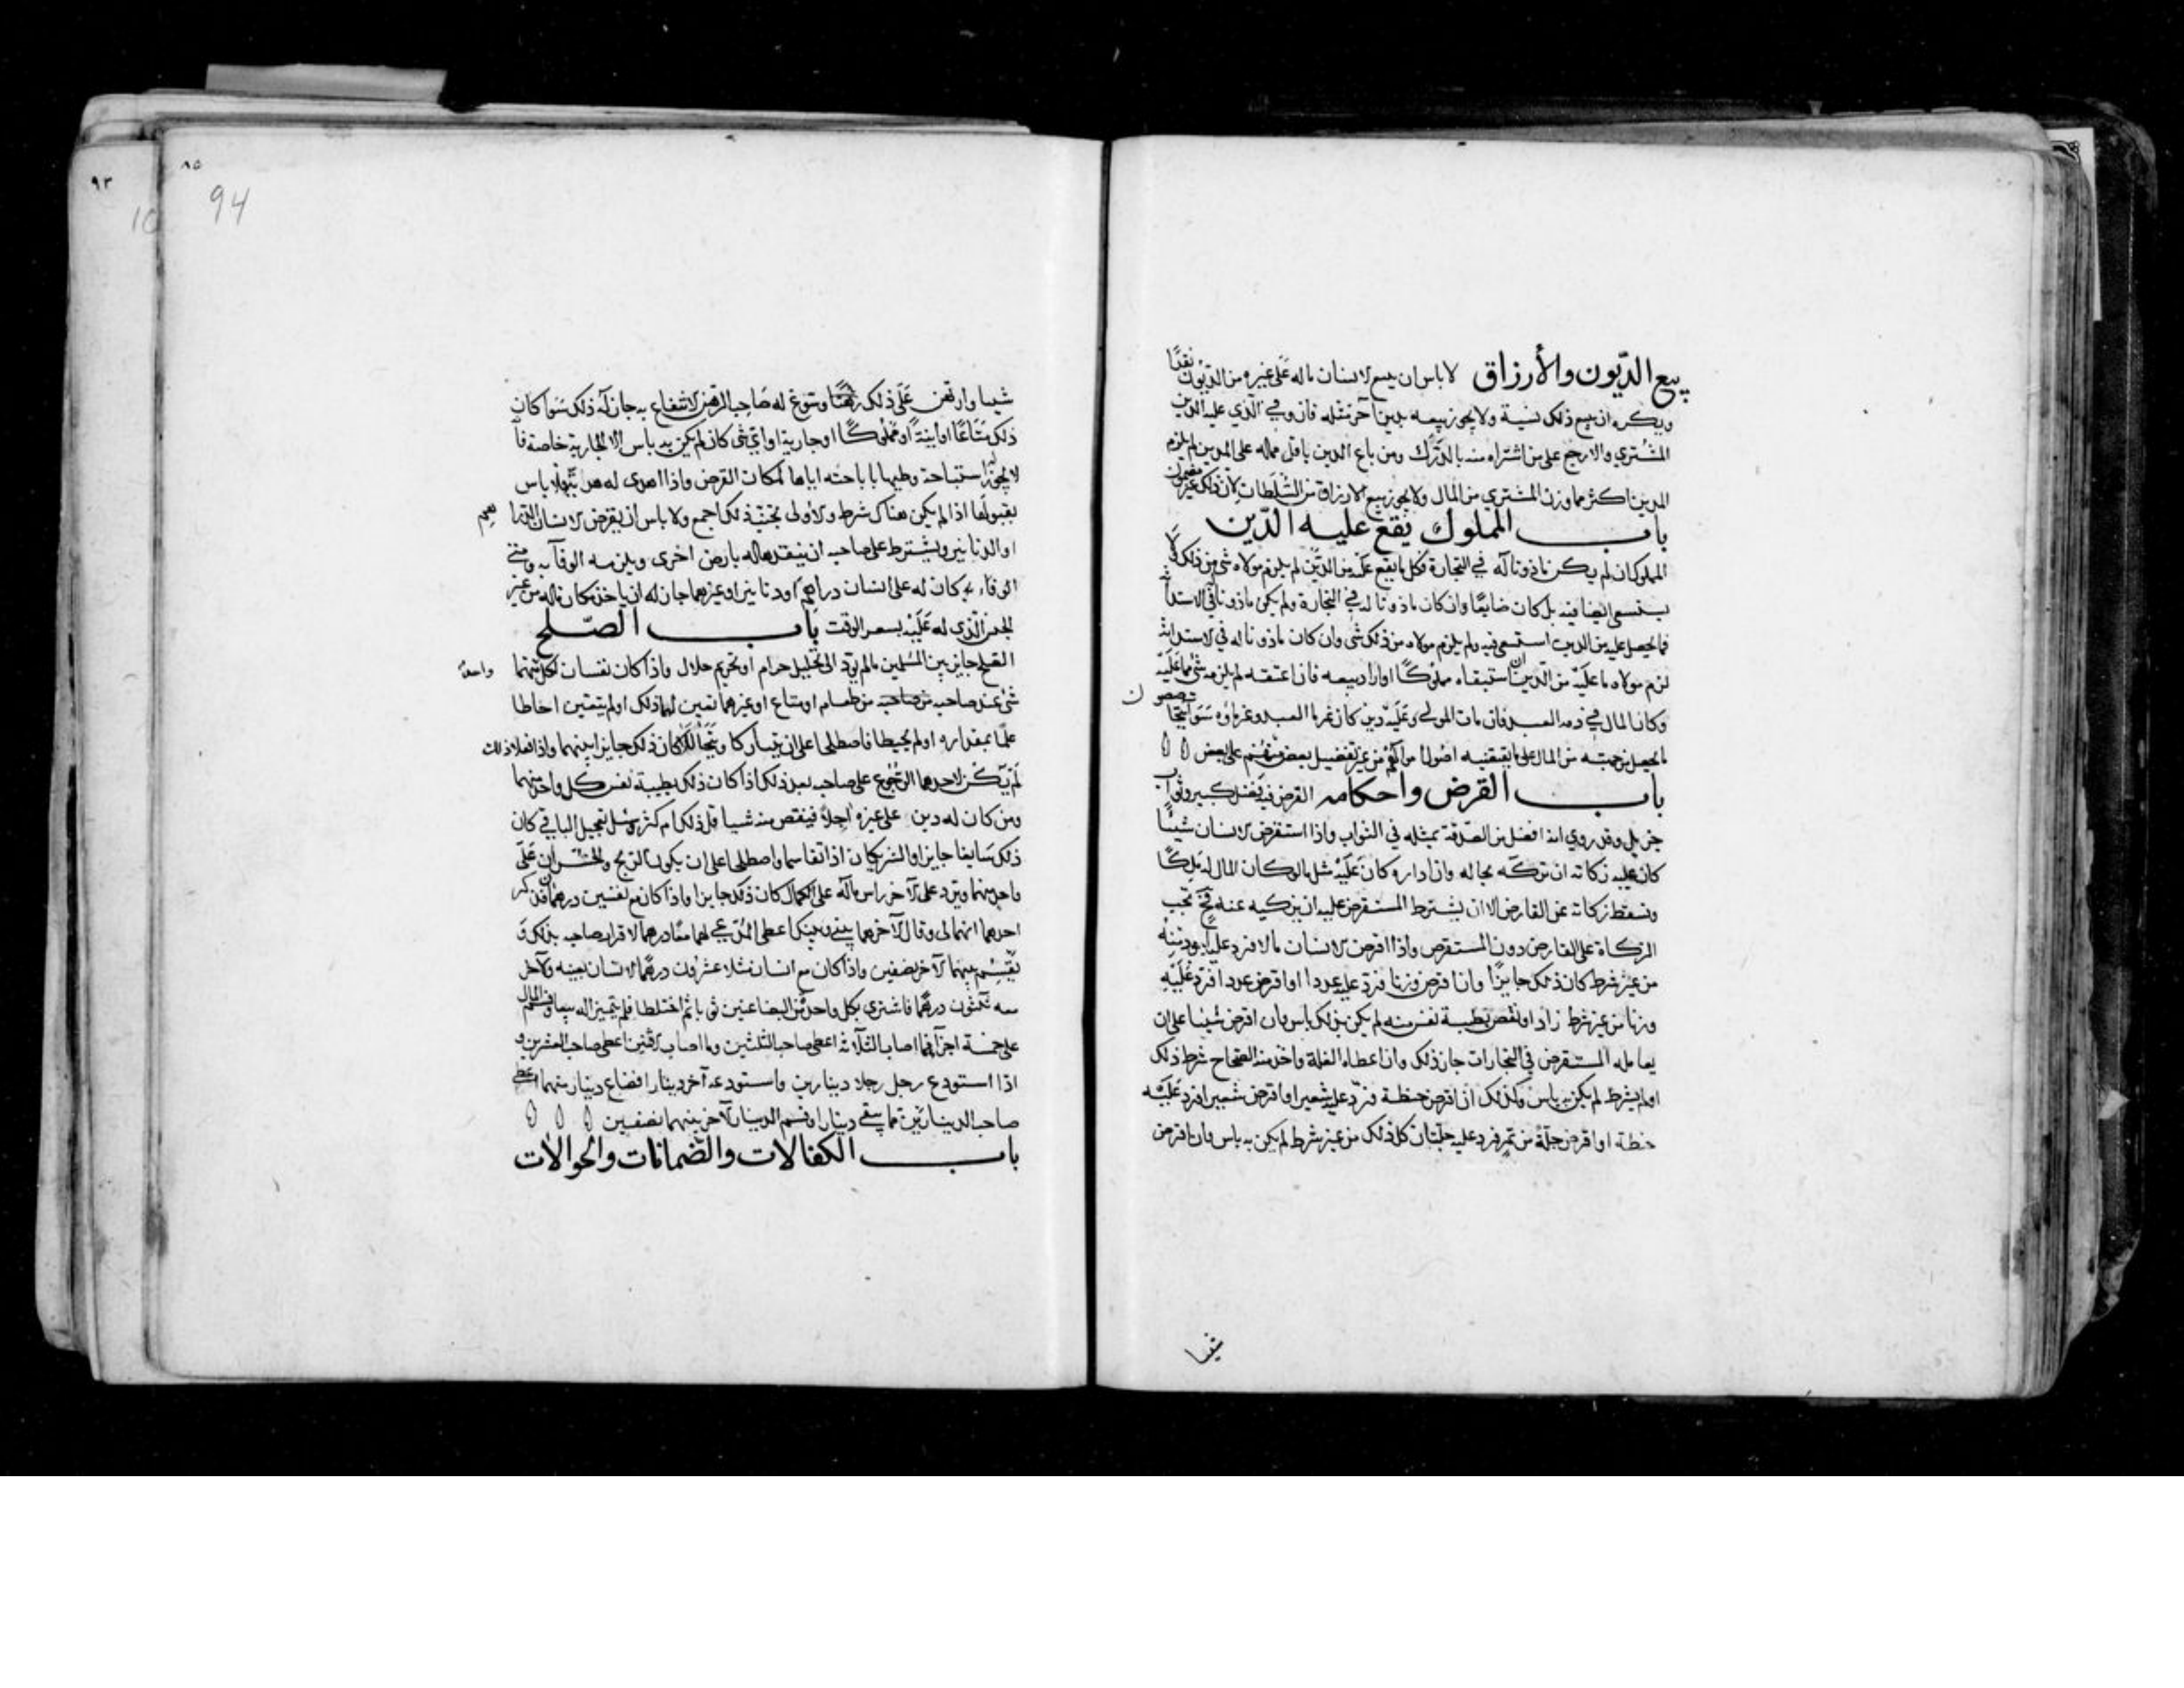 بيع الديون والأرزاق لا باس ان يبيع الانسان ماله على غيره من الديون نقدًا
ويكره ان يبيع ذلك نسية ولا يجوز بيعه بدين آخر مثله فان وفي الذي عليه الدين
المشتري والا رجع على من اشتراه منه بالدرك ومن باع الدين باقل مماله على المدين لم يلزم
المدين اكثر مما وزن المشتري من المال ولا يجوز بيع الارزاق من السلطان لان ذلك غير مضمون
باب المملوك يقع عليه الدين
المملوك ان لم يكن ماذونا له في التجارة فكل ما يقع عليه من الدين لم يلزم مولاه شي من ذلك ولا
يستسعى ايضا فيه بل كان ضايعًا وان كان ماذونا له في التجارة ولم يكن ماذونا في الاستدانة
فما يحصل عليه من الدين استسعى فيه ولم يلزم مولاه من ذلك شي وان كان ماذونا له في الاستدانة
لزم مولاه ما عليه من الدين ان استبقاه مملوكًا او اراد بيعه فان اعتقه لم يلزمه شي مما عليه
وكان المال في ذمة العبد فان مات المولى وعليه دين كان غرما العبد وغرماؤه سوا يتحاصون
ما يحصل من جهته من المال على ما يقتضيه اصول اموالهم من غير تفضيل بعض منهم على بعض
باب القرض واحكامه القرض فيه فضل كبير وثواب
جزيل وقد روي انه افضل من الصدقة بمثله في الثواب واذا استقرض الانسان شيئًا
كان عليه زكاته ان تركه بحاله وان اداره وكان عليه مثل مالو كان المال له ملكًا
وتسقط زكاته عن القارض الا ان يشترط المستقرض عليه ان يزكيه عنه فح تجب
الزكاة على القارض دون المستقرض واذا اقرض الانسان مالا فرد عليه اجود منه
من غير شرط كان ذلك جايزًا وان اقرض وزنا فرد عليه عددا او اقرض عددا فرد عليه
وزنا من غير شرط زاد او نقص بطيبة نفس منه لم يكن بذلك باس وان اقرض شيئا على ان
يعامله المستقرض في التجارات جاز ذلك وان اعطاه الغلة واخذ منه الصحاح شرط ذلك
او لم يشرط لم يكن به باس وكذلك ان اقرض حنطة فرد عليه شعيرا او اقرض شعيرا فرد عليه
حنطة او اقرض جلة من تمر فرد عليه جلتان كل ذلك من غير شرط لم يكن به باس وان اقرض
شيئا
٨٥
94
٩٣
شيا وارتهن على ذلك رهنًا وسوغ له صاحب الرهن الانتفاع به جاز له ذلك سوا كان
ذلك متاعًا او آنية او مملوكًا او جارية او اي شي كان لم يكن به باس الا الجارية خاصة فانه
لا يجوز له استباحة وطيها باباحته اياها لمكان القرض واذا اهدى له هدية فلا باس
بقبولها اذا لم يكن هناك شرط والاولى تجنب ذلك اجمع ولا باس ان يقرض الانسان الدراهم
او الدنانير ويشترط على صاحبه ان ينقدها له بارض اخرى ويلزمه الوفآ به ومتى
كان له على انسان دراهم او دنانير او غيرهما جاز له ان ياخذ مكان ماله من غير
الجنس الذي له عليه بسعر الوقت باب الصلح
الصلح جايز بين المسلمين ما لم يؤد الى تحليل حرام او تحريم حلال واذا كان نفسان لكل واحد منهما
شي عند صاحبه من طعام او متاع او غيرهما تعين لهما ذلك او لم يتعين احاطا
علمًا بمقداره او لم يحيطا فاصطلحا على ان يتتاركا ويتحالا كان ذلك جايزا بينهما واذا فعلا ذلك
لم يكن لاحدهما الرجوع على صاحبه بعد ذلك اذا كان ذلك بطيبة نفس كل واحد منهما
ومن كان له دين على غيره اجلا فينقص منه شيا قل ذلك ام كثر وسل تعجيل الباقي كان
ذلك سايغا جايزا والشريكان اذا تقاسما واصطلحا على ان يكون الربح والخسران على
واحد منهما ويرد على الآخر راس ماله على الكمال كان ذلك جايزا واذا كان مع نفسين درهمان فذكر
احدهما انهما لي وقال الآخر هما بيني وبينك اعطى المدعي لهما معًا درهما لاقرار صاحبه بذلك و
يقسم بينهما الآخر نصفين واذا كان مع انسان مثلا عشرون درهمًا لانسان بعينه ولآخر
معه ثلثون درهمًا فاشترى بكل واحد من البضاعتين ثوبا ثم اختلطا فلم يتميزا له بيعا وقسم المال
على خمسة اجزآ فما اصاب الثلاثة اعطى صاحب الثلثين وما اصاب الاثنين اعطى صاحب العشرين و
اذا استودع رجل رجلا دينارين واستودعه آخر دينارا فضاع دينار منهما اعطى
صاحب الدينارين مما بقي دينارا وقسم الدينار الآخر بينهما نصفين
باب الكفالات والضمانات والحوالات